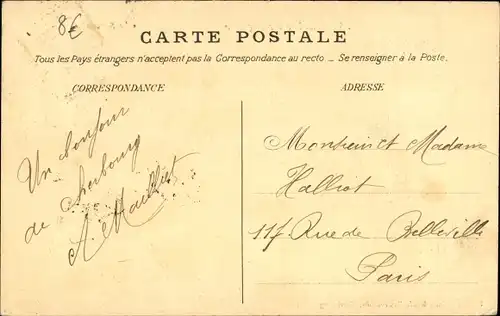 8€
CARTE POSTALE
Tous les Pays étrangers n'acceptent pas la Correspondance au recto _ Se renseigner à la Poste.
CORRESPONDANCE
Un bonjour
de Cherbourg
A. Mailliet
ADRESSE
Monsieur et Madame
Halliot
117 Rue de Belleville
Paris